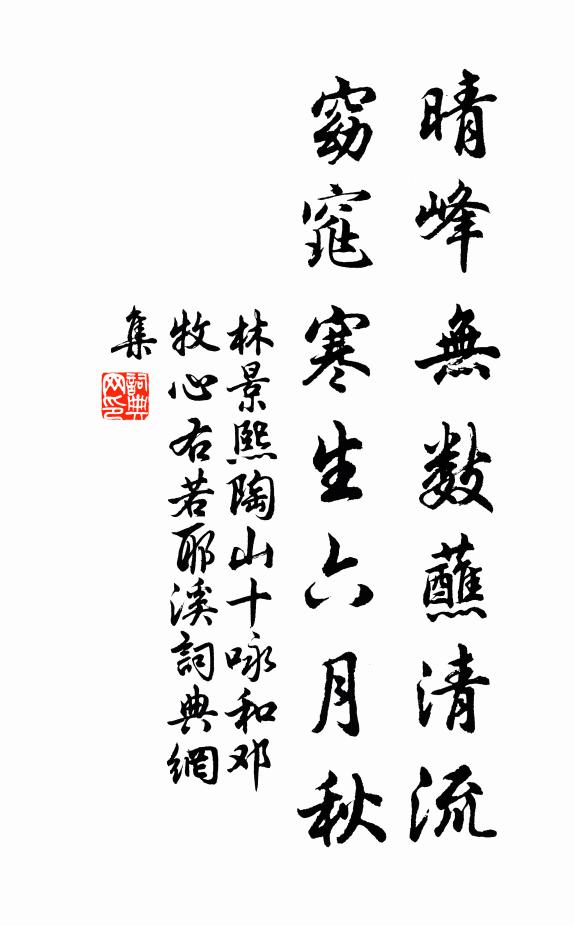 晴峰無數蘸清流
窈窕寒生六月秋
林景熙陶山十咏和邓
牧心右若耶溪詞典網
集
詞典网印